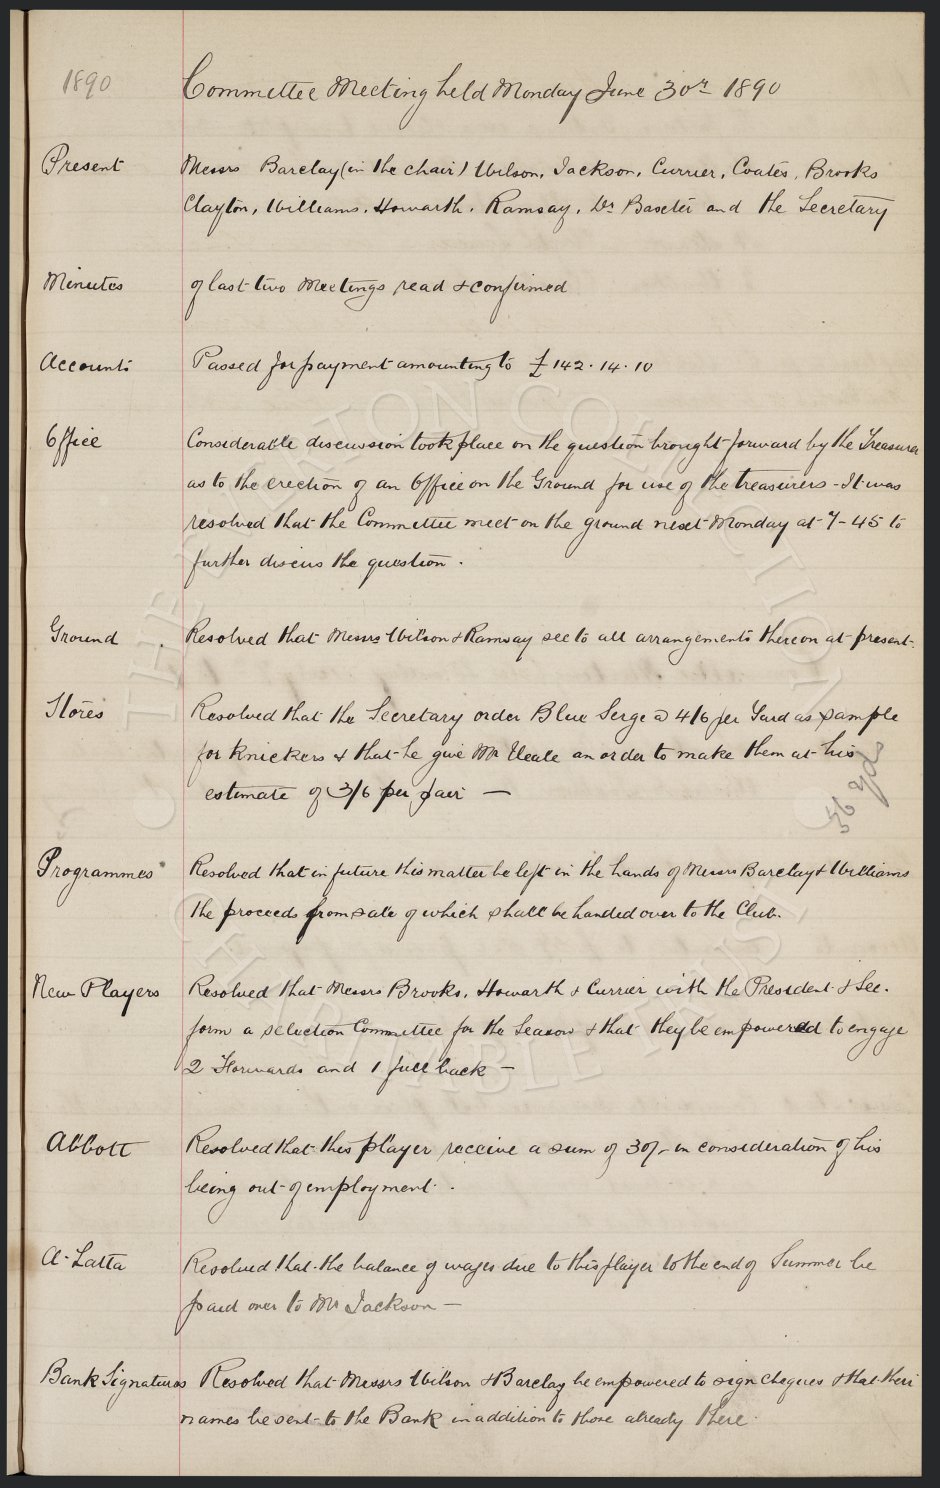 1890
Committee Meeting held Monday June 30th 1890
Present Messrs Barclay (in the chair) Wilson, Jackson, Currier, Coates, Brooks
Clayton, Williams, Howarth, Ramsay, Dr Baxter and the Secretary
Minutes of last two Meetings read & confirmed
Accounts Passed for payment amounting to £142.14.10
Office Considerable discussion took place on the question brought forward by the Treasurer
as to the erection of an Office on the Ground for use of the treasurers - It was
resolved that the Committee meet on the ground next Monday at 7-45 to
further discuss the question.
Ground Resolved that Messrs Wilson & Ramsay see to all arrangements thereon at present.
Stores Resolved that the Secretary order Blue Serge @ 4/6 per Yard as sample
for Knickers & that he give Mr Neale an order to make them at his
estimate of 3/6 per pair —
56 yds
Programmes Resolved that in future this matter be left in the hands of Messrs Barclay & Williams
the proceeds from sale of which shall be handed over to the Club.
New Players Resolved that Messrs Brooks, Howarth & Currier with the President & Sec.
form a selection Committee for the Season & that they be empowered to engage
2 Forwards and 1 full back —
Abbott Resolved that this player receive a sum of 30/- in consideration of his
being out of employment.
A. Latta Resolved that the balance of wages due to this player to the end of Summer be
paid over to Mr Jackson —
Bank Signatures Resolved that Messrs Wilson & Barclay be empowered to sign cheques & that their
names be sent to the Bank in addition to those already there.
THE EVERTON COLLECTION
CHARITABLE TRUST